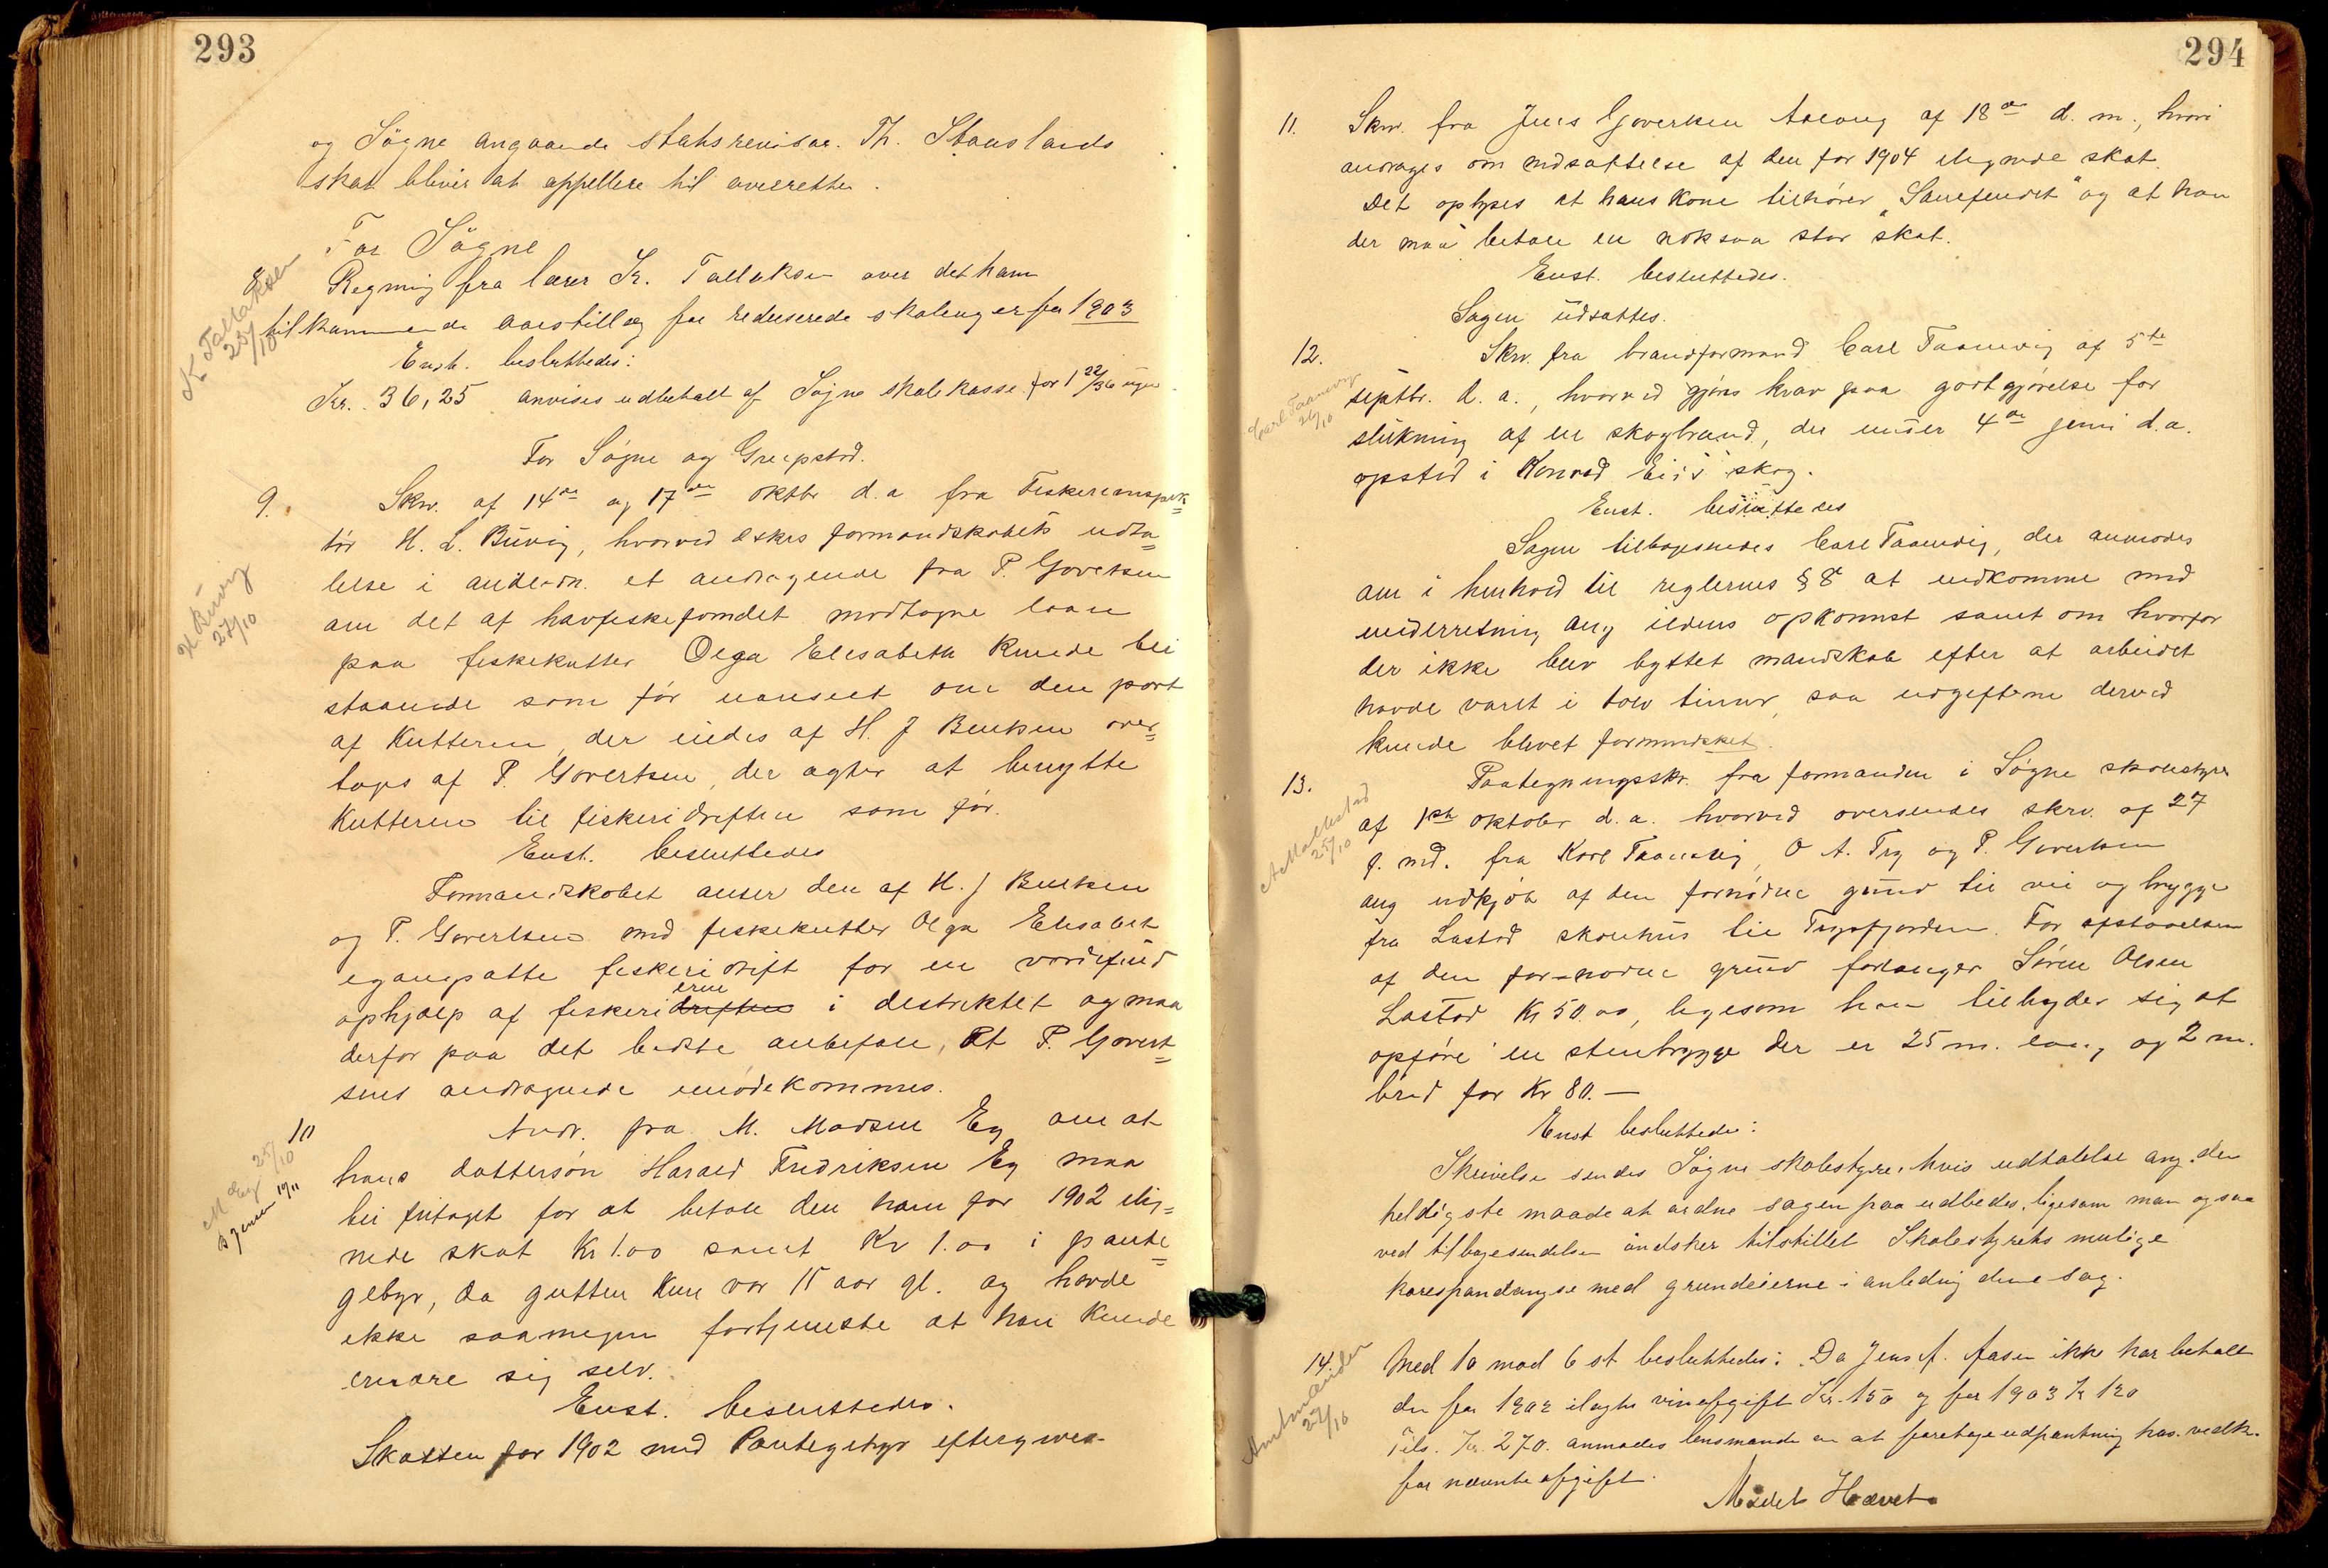 293
og Søgne angaaende statsrevisor. Th. Stauslands
skat bliver at appellere til overretten.
For Søgne
8. Regning fra lærer Kr. Tallaksen over det ham
K Tallaksen 25/10
tilkommende aarstillæg for reduserede skoleuger for 1903
Enst. besluttedes:
Kr. 36,25 anvises udbetalt af Søgne skolekasse for 1 22/36 uger
For Søgne og Greipstad.
9. Skr. af 14de og 17de oktbr d.a fra Fiskeriinspek=
tør H. L. Buvig, hvorved æskes formandskabets udta=
H Buvig 27/10
lelse i anledn. et andragende fra P. Govertsen
om det af havfiskefondet modtagne laan
paa fiskekutter Olga Elisabeth kunde bli
staaende som før uanseet om den part
af Kutteren, der eiedes af H. J Bentsen over=
tages af P. Govertsen, der agter at benytte
Kutteren til fiskeridriften som før.
Enst. besluttedes
Formandskabet anser den af H. J Bentsen
og P. Govertsen med fiskekutter Olga Elisabet
egangsatte fiskeridrift for en værdifuld
ophjælp af fiskeridriften erne i distriktet og maa
derfor paa det bedste anbefale, At P. Govert=
sens andragende imødekommes.
10 Andr. fra M. Madsen Eg om at
M Eg 25/10
hans dattersøn Harald Fredriksen Eg maa
bli fritaget for at betale den ham for 1902 ilig=
nede skat Kr 1.00 samt Kr 1.00 i pante=
gebyr, da gutten kun var 15 aar gl. og havde
ikke saamegen fortjeneste at han kunde
ernære sig selv.
Enst. besluttedes.
Skatten for 1902 med Pantegebyr eftergives
294
11. Skr. fra Jens Govertsen Aaleng af 18de d. m., hvori
andrages om nedsættelse af den for 1904 ilignede skat.
Det oplyses at hans kone tilhører og at han
der maa betale en noksaa stor skat.
Enst. besluttedes.
Sagen udsættes.
12. Skr. fra brandformand Carl Taanevig af 5te
Carl Taanevig 26/10
septbr. d. a., hvorved gjøres krav paa godtgjørelse for
slukning af en skogbrand, der under 4de juni d.a.
opstod i Konrad Eiis skog.
Enst. besluttedes
Sagen tilbagesendes Carl Taanevig, der anmodes
om i henhold til reglernes § 8 at indkomme med
underretning ang ildens opkomst samt om hvorfor
der ikke blev byttet mandskab efter at arbeidet
havde varet i tolv timer, saa udgifterne derved
kunde blevet formindsket.
13. Paategningsskr. fra formanden i Søgne skolestyre
25/10
af 1ste oktober d.a. hvorved oversendes skrv. af 27
f. md. fra Karl Taanevig, O A. Try og P. Govertsen
ang indkjøb af den fornødne grund til vei og brygge
fra Lastad skolehus til Trysfjorden. For afstaaelsen
af den for-nødne grund forlanger Søren Olsen
Lastad Kr 50.00, ligesom han tilbyder sig at
opføre en stenbrygge der er 25 m. lang og 2 m.
bred for Kr 80.—
Enst besluttedes:
Skrivelse sendes Søgne skolestyre, hvis udtalelse ang. den
heldigste maade at ordne sagen paa udbedes, ligesom man ogsaa
ved tilbagesendelse ønsker tilstillet Skolestyrets mulige
korespondangse med grundeierne i anledning denne sag.
14. Med 10 mod 6 st besluttedes: Da Jens A. Aasen ikke har betalt
Amtmanden 27/10
den for 1902 ilagte vinafgift Kr. 150 og for 1903 Kr 120
Tils. Kr. 270. anmodes lensmanden om at foretage udpantning hos vedk.
for nævnte afgift.
Mødet Hævet.